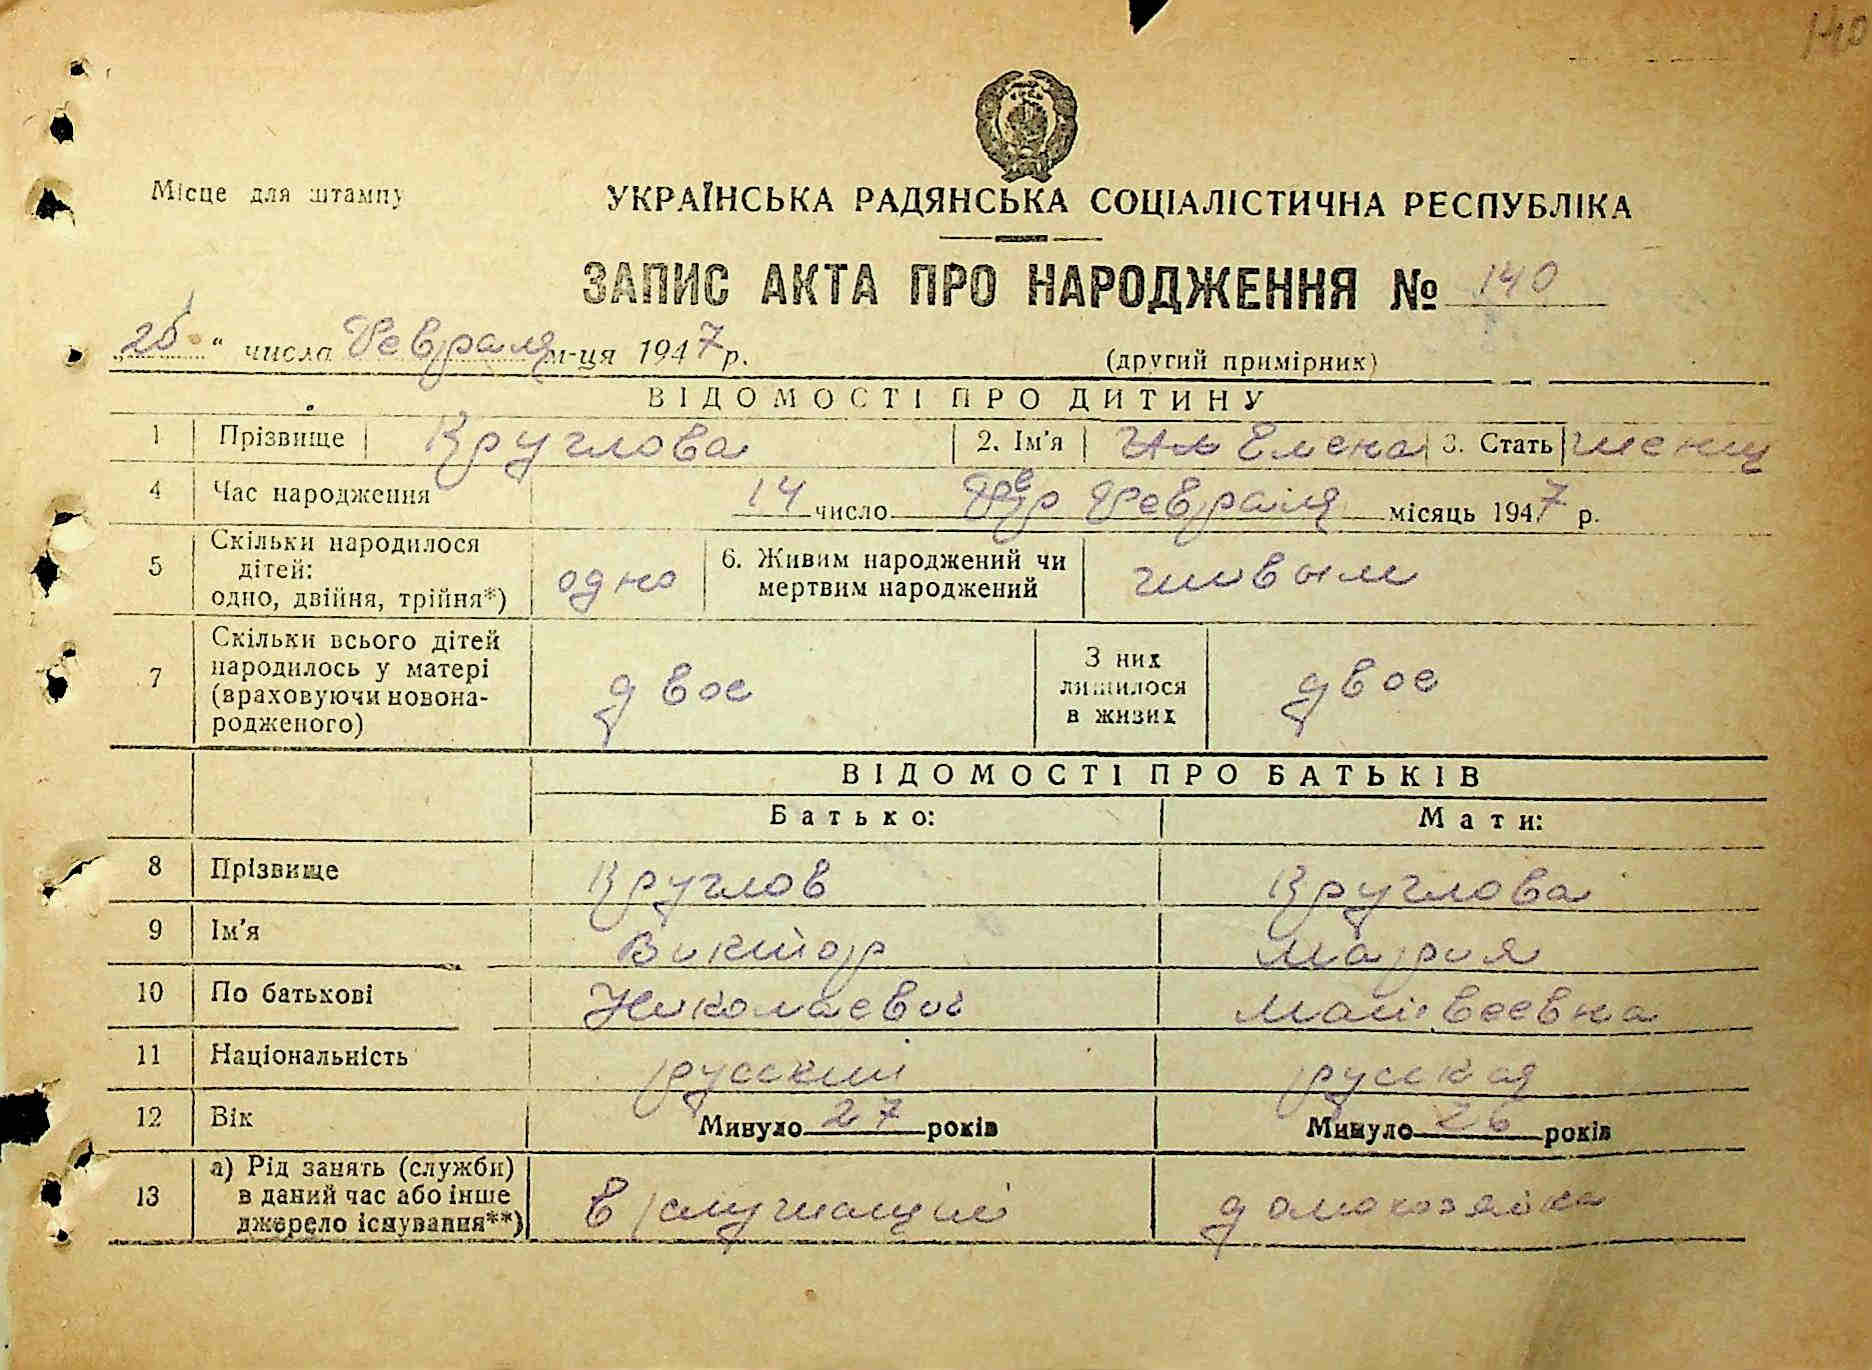 140
Місце для штампу
УКРАЇНСЬКА РАДЯНСЬКА СОЦІАЛІСТИЧНА РЕСПУБЛІКА
ЗАПИС АКТА ПРО НАРОДЖЕННЯ № 140
„25“ числа Февраля м-ця 1947 р.
(другий примірник)
ВІДОМОСТІ ПРО ДИТИНУ
1 Прізвище Круглова 2. Ім'я Елена 3. Стать женщ
4 Час народження 14 число Февраля місяць 1947 р.
5 Скільки народилося дітей: одно, двійня, трійня*) одно 6. Живим народжений чи мертвим народжений живым
7 Скільки всього дітей народилось у матері (враховуючи новонародженого) двое З них лишилося в живих двое
ВІДОМОСТІ ПРО БАТЬКІВ
Батько: Мати:
8 Прізвище Круглов Круглова
9 Ім'я Виктор Мария
10 По батькові Николаевич Матвеевна
11 Національність русский русская
12 Вік Минуло 27 років Минуло 26 років
13 а) Рід занять (служби) в даний час або інше джерело існування**) в/служащий домохозяйка